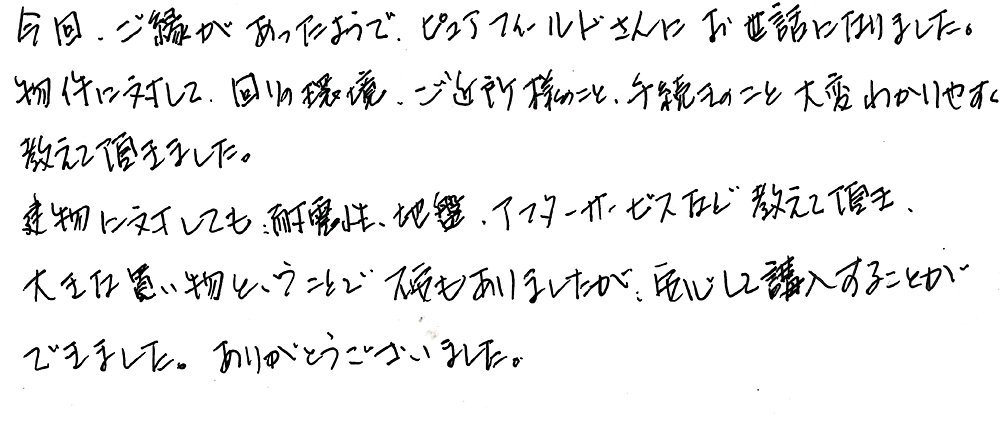 今回、ご縁があったようで、ピュアフィールドさんにお世話になりました。
物件に対して、回りの環境、ご近所様のこと、手続きのこと大変わかりやすく
教えて頂きました。
建物に対しても、耐震性、地盤、アフターサービスなど教えて頂き、
大きな買い物ということで不安もありましたが、安心して購入することが
できました。ありがとうございました。